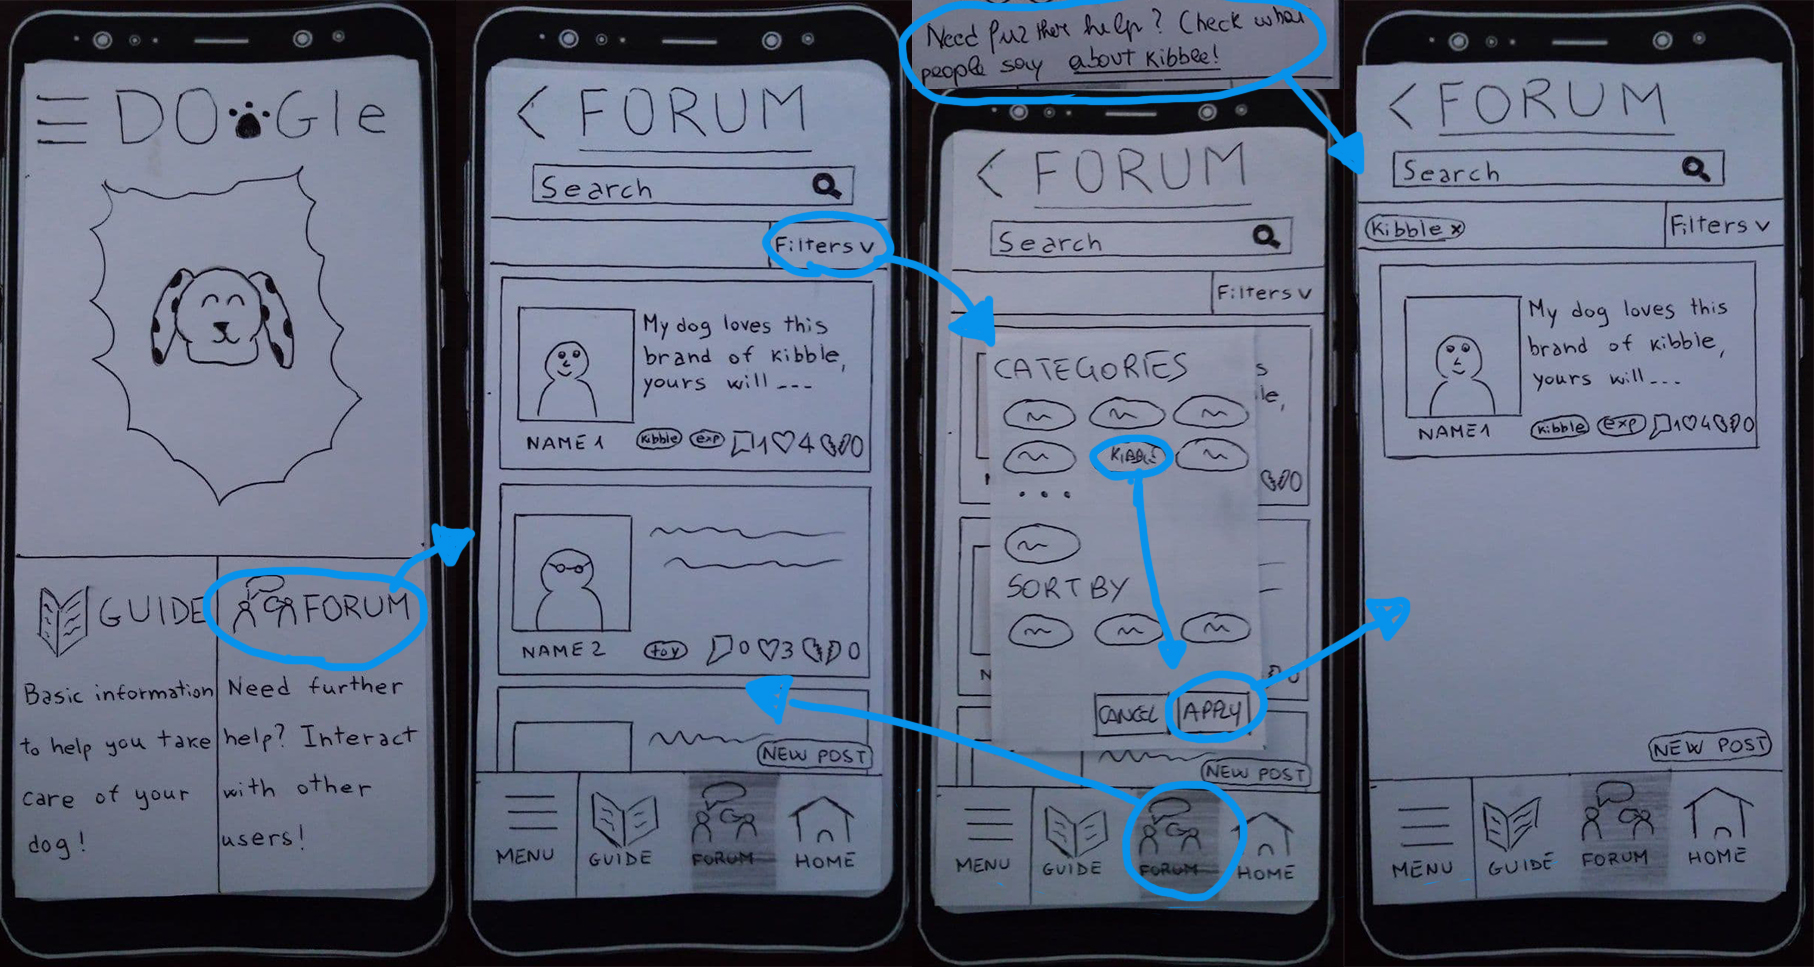 DOGle
GUIDE
FORUM
Basic information
to help you take
care of your
dog!
Need further
help? Interact
with other
users!
FORUM
Search
Filters v
My dog loves this
brand of kibble,
yours will ---
NAME 1
kibble exp 1 4 0
NAME 2
toy 0 3 0
NEW POST
MENU GUIDE FORUM HOME
Need further help? Check what
people say about kibble!
FORUM
Search
Filters v
s
le,
CATEGORIES
KIBBLE
...
SORT BY
0
0
CANCEL APPLY
NEW POST
MENU GUIDE FORUM HOME
FORUM
Search
Kibble x
Filters v
My dog loves this
brand of kibble,
yours will ---
NAME 1
kibble exp 1 4 0
NEW POST
MENU GUIDE FORUM HOME